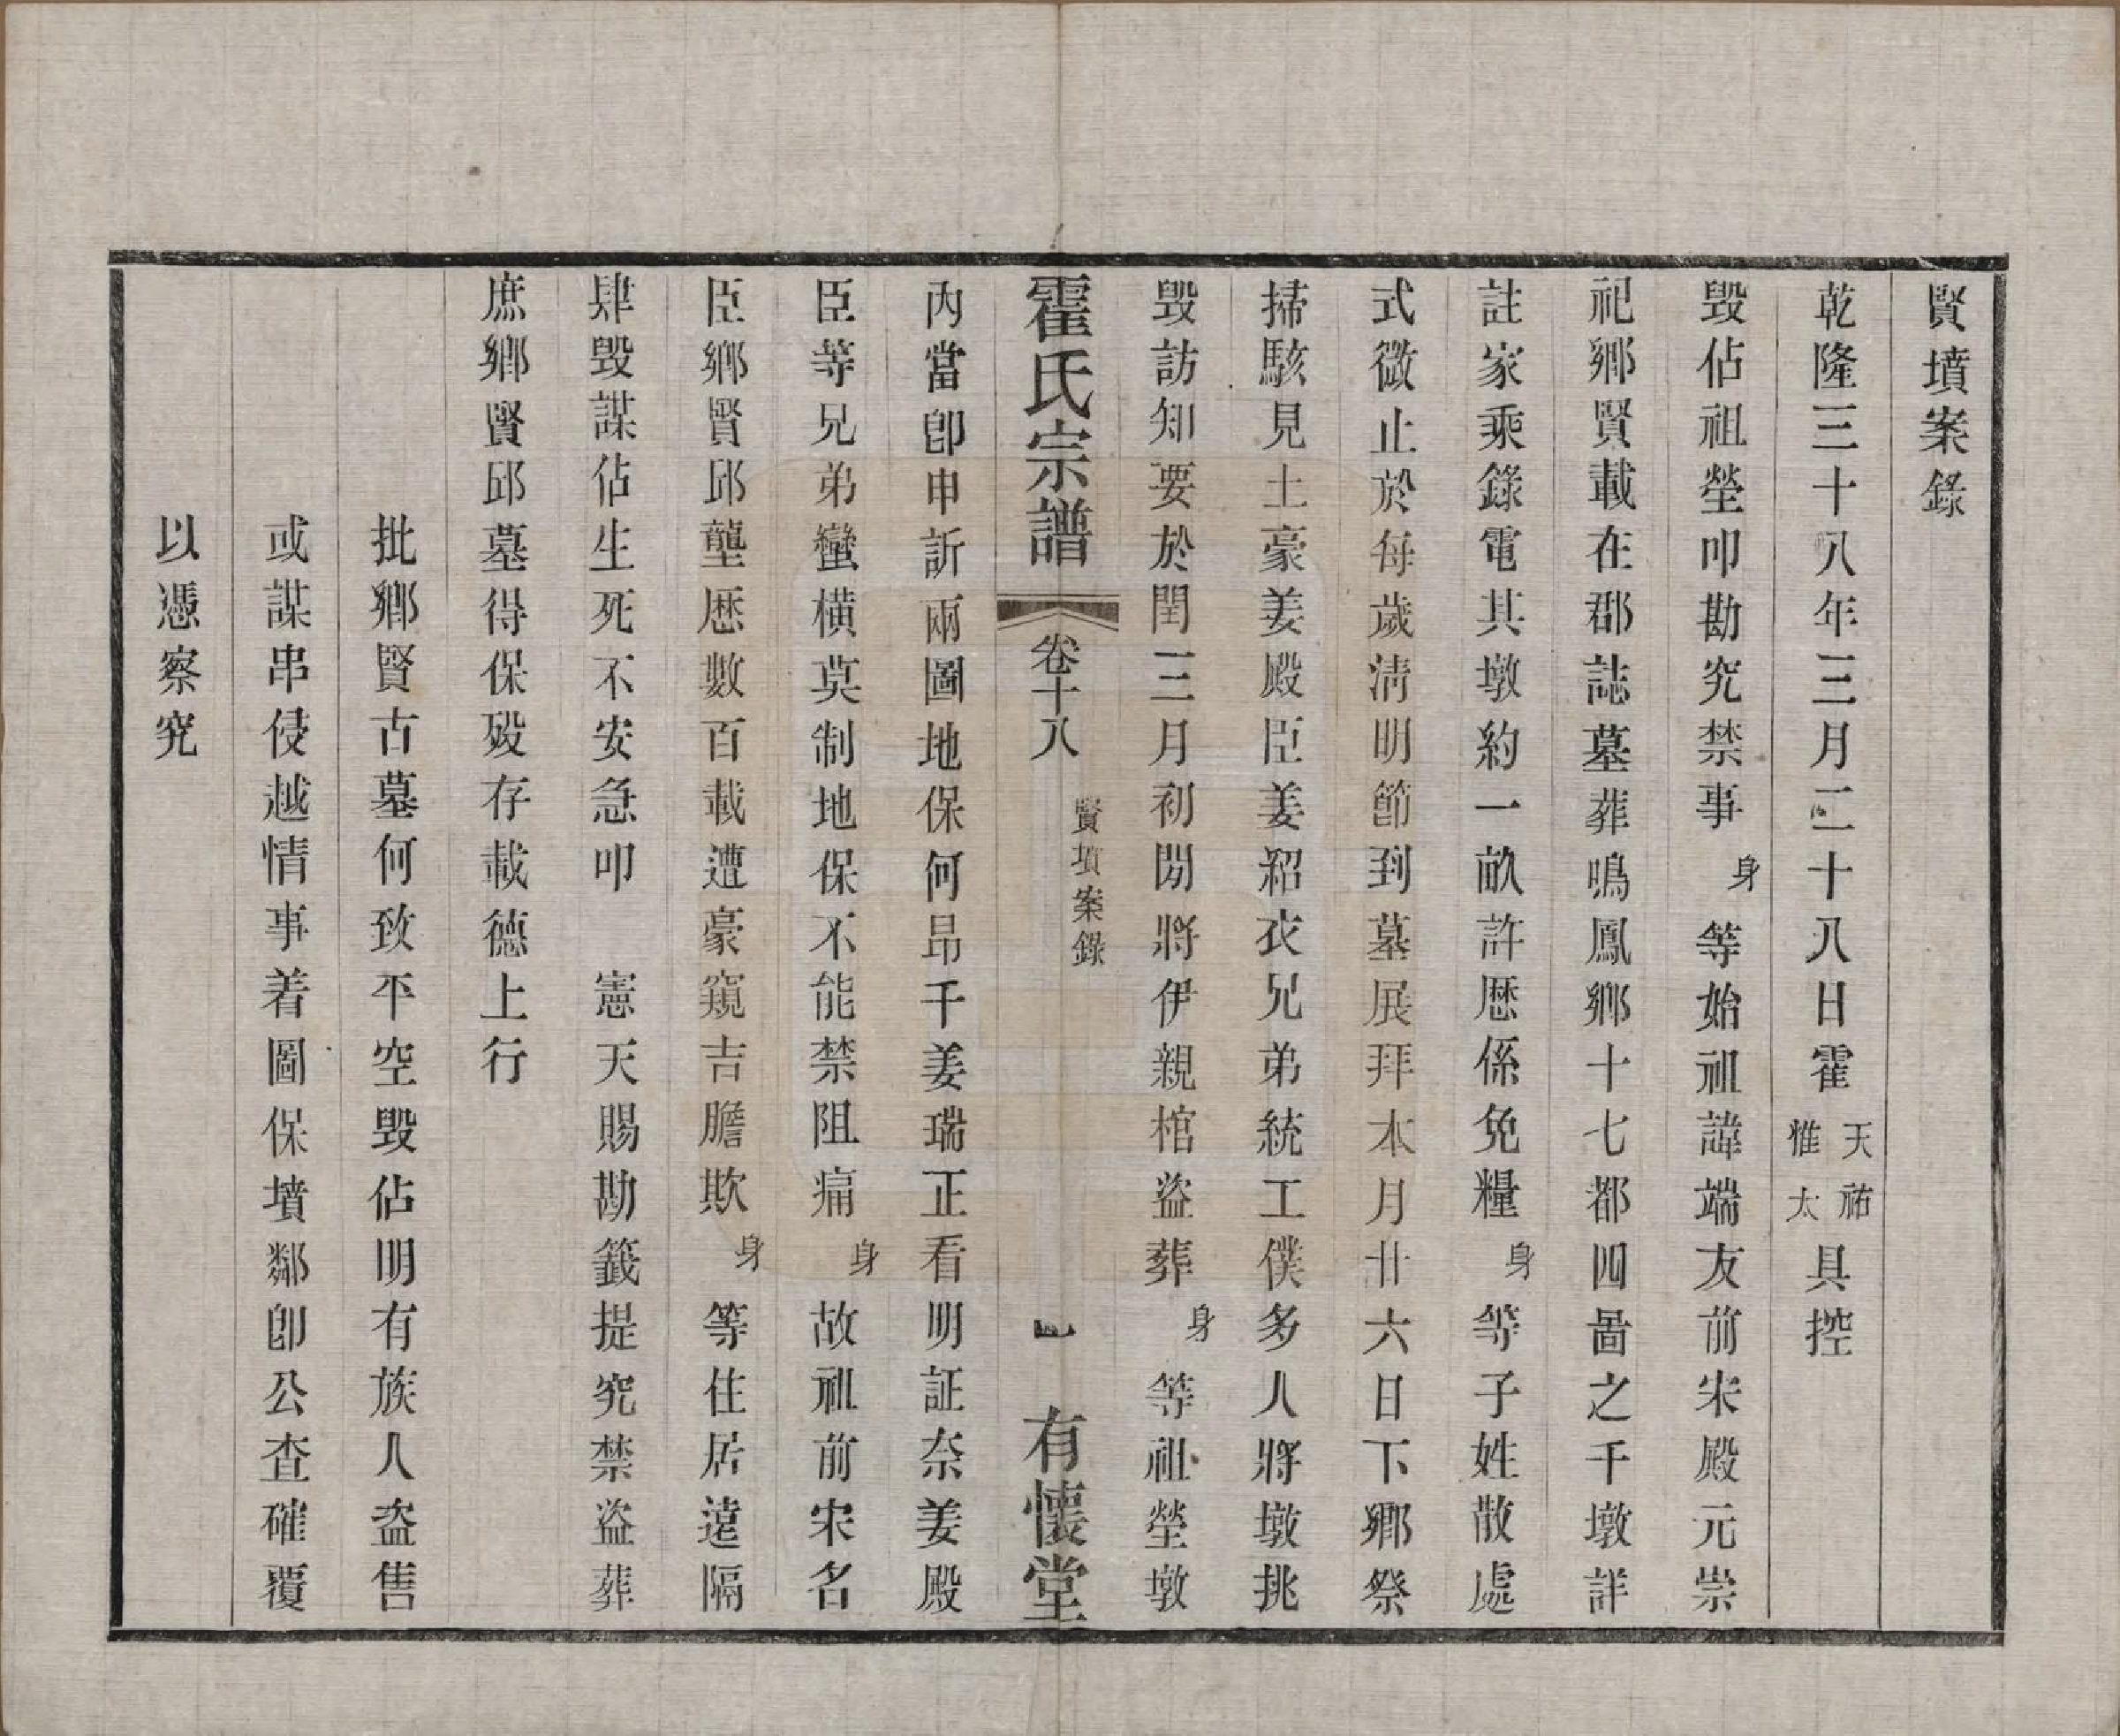 賢墳案錄
乾隆三十八年三月二十八日霍天祐雅太具控
毀佔祖塋叩勘究禁事身等始祖諱端友前宋殿元崇
祀鄉賢載在郡誌墓葬鳴鳳鄉十七都四啚之千墩詳
註家乘錄電其墩約一畝許厯係免糧身等子姓散處
式微止於每歲清明節到墓展拜本月廿六日下鄉祭
掃駭見土豪姜殿臣姜紹衣兄弟統工僕多人將墩挑
毀訪知要於閏三月初閒將伊親棺盜葬身等祖塋墩
霍氏宗譜
卷十八
賢墳案錄
一
有懷堂
內當卽申訢兩圖地保何昂千姜瑞正看明証奈姜殿
臣等兄弟蠻橫莫制地保不能禁阻痛身故祖前宋名
臣鄉賢邱壟厯數百載遭豪窺吉膽欺身等住居遠隔
肆毀謀佔生死不安急叩　憲天賜勘籖提究禁盜葬
庶鄉賢邱墓得保殁存載德上行
批鄉賢古墓何致平空毀佔明有族人盜售
或謀串侵越情事着圖保墳鄰卽公查確覆
以憑察究